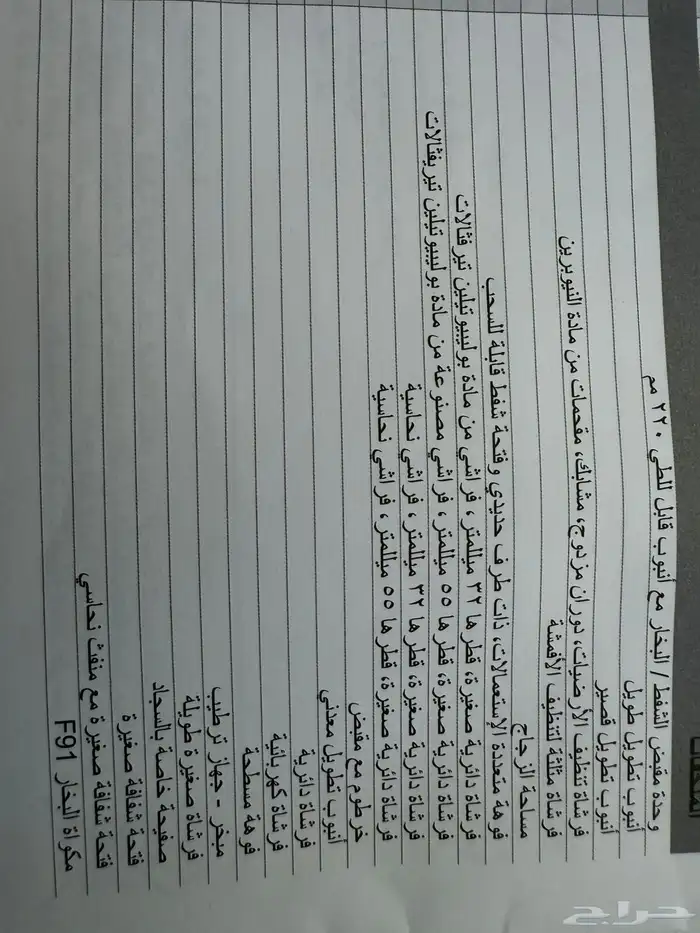 المكونات
وحدة مقبض الشفط / البخار مع أنبوب قابل للطي ٢٢٠ مم
أنبوب تطويل طويل
أنبوب تطويل قصير
فرشاة تنظيف الأرضيات، دوران مزدوج، مشابك، مقحمات من مادة النيوبرين
فرشاة مثلثة لتنظيف الأقمشة
مساحة الزجاج
فوهة متعددة الإستعمالات، ذات طرف حديدي وفتحة شفط قابلة للسحب
فرشاة دائرية صغيرة، قطرها ٣٢ ميللمتر، فراشي من مادة بوليبيوتيلين تيرفثالات
فرشاة دائرية صغيرة، قطرها ٥٥ ميللمتر، فراشي مصنوعة من مادة بوليبيوتيلين تيريفثالات
فرشاة دائرية صغيرة، قطرها ٣٢ ميللمتر، فراشي نحاسية
فرشاة دائرية صغيرة، قطرها ٥٥ ميللمتر، فراشي نحاسية
خرطوم مع مقبض
أنبوب تطويل معدني
فرشاة دائرية
فرشاة كهربائية
فوهة مسطحة
مبخر - جهاز ترطيب
فرشاة صغيرة طويلة
صفيحة خاصة بالسجاد
فتحة شفافة صغيرة
فتحة شفافة صغيرة مع منفث نحاسي
مكواة البخار F91
حراج